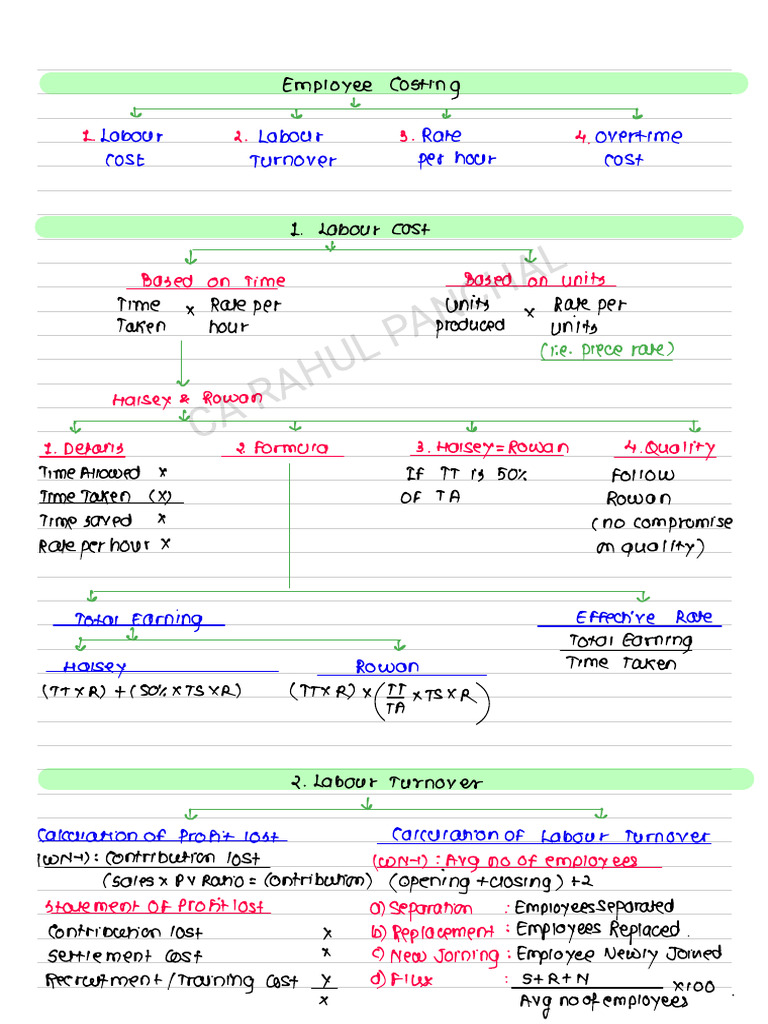 Employee Costing
1. Labour Cost
2. Labour Turnover
3. Rate per hour
4. Overtime Cost
1. Labour Cost
Based on Time
Time Taken x Rate per hour
Based on units
Units produced x Rate per units
(i.e. piece rate)
CA RAHUL PANCHAL
Halsey & Rowan
1. Details
Time Allowed x
Time Taken (x)
Time saved x
Rate per hour x
2. Formula
3. Halsey = Rowan
If TT is 50%
OF TA
4. Quality
Follow
Rowan
(no compromise
on quality)
Total Earning
Halsey
(TT x R) + (50% x TS x R)
Rowan
(TT x R) x (TT/TA x TS x R)
Effective Rate
Total Earning
Time Taken
2. Labour Turnover
Calculation of Profit lost
(WN-1) : Contribution lost
(Sales x PV Ratio = Contribution)
Statement of Profit lost
Contribution lost x
Settlement Cost x
Recruitment / Training cost x
x
Calculation of Labour Turnover
(WN-1) : Avg no of employees
(opening + closing) ÷ 2
a) Separation : Employees Separated
b) Replacement : Employees Replaced.
c) New Joining : Employee Newly Joined
d) Flux : S+R+N x 100
Avg no of employees